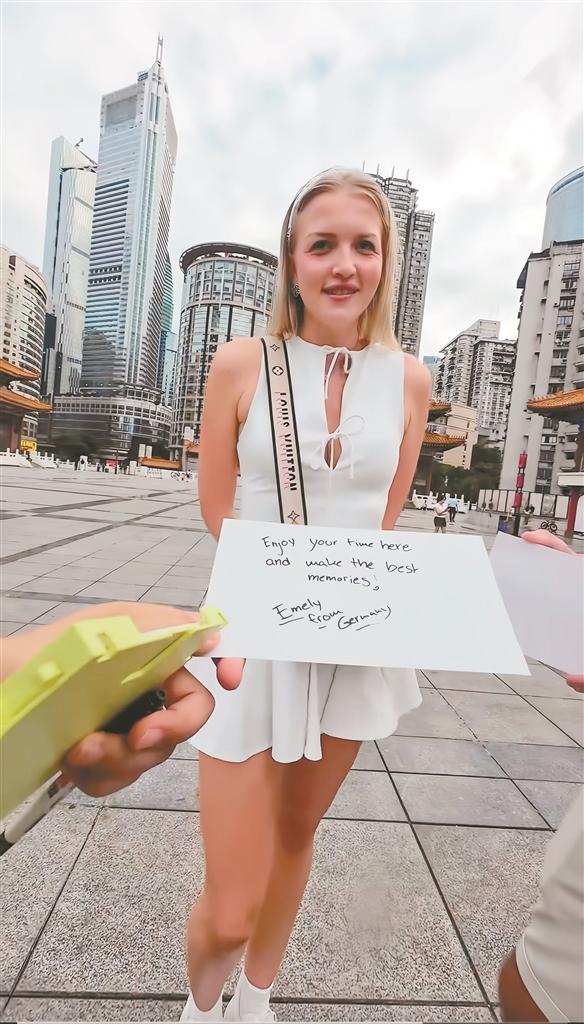 LOUIS VUITTON
Enjoy your time here
and make the best
memories!
Emely
from (Germany)